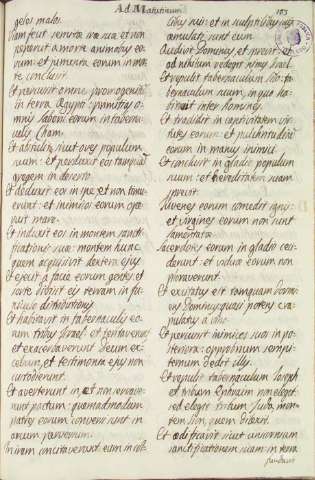 Ad Matutinum
103
gelos malos.
Viam fecit semitæ iræ suæ et non
pepercit a morte animabus eo-
rum: et jumenta eorum in mor
te conclusit.
Et percussit omne primogenitum
in terra Ægypti: primitias o-
mnis laboris eorum in taberna-
culis Cham.
Et abstulit sicut oves populum
suum: et perduxit eos tamquam
gregem in deserto.
Et deduxit eos in spe, et non timu
erunt: et inimicos eorum ope-
ruit mare.
Et induxit eos in montem sancti-
ficationis suæ: montem quem
acquisivit dextera ejus
Et ejecit a facie eorum gentes et
sorte divisit eis terram in fu-
niculo distributionis.
Et habitavit in tabernaculis eo-
rum tribus Israel.
et tentaverunt
et exacerbaverunt Deum ex-
celsum, et testimonia ejus non
custodierunt.
Et averterunt se, et non servave-
runt pactum: quemadmodum
patres eorum conversi sunt in
arcum pravum.
In iram concitaverunt eum in col-
libus suis: et in sculptilibus suis
æmulati sunt eum.
Audivit Dominus, et sprevit: et
ad nihilum redegit Israel.
Et repulit tabernaculum Silo: ta-
bernaculum suum, in quo ha-
bitavit inter homines.
Et tradidit in captivitatem vir-
tutes eorum: et pulchritudines
eorum in manus inimici.
Et conclusit in gladio populum
suum: et hereditatem suam
sprevit.
Juvenes eorum comedit ignis:
et virgines eorum non sunt
lamentatæ.
Sacerdotes eorum in gladio ceci-
derunt: et viduæ eorum non
plorabantur.
Et excitatus est tamquam dormi-
ens Dominus: quasi potens cra-
pulatus a vino.
Et percussit inimicos suos in po-
steriora: opprobrium sempi-
ternum dedit illis.
Et repulit tabernaculum Joseph
et tribum Ephraim non elegit:
sed elegit tribum Juda, mon-
tem Sion, quem dilexit.
Et ædificavit sicut unicornium
sanctificationem suam in terra